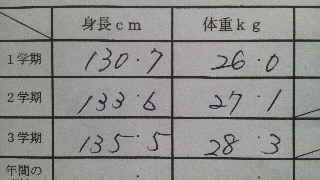 身長cm 体重kg
1学期 130.7 26.0
2学期 133.6 27.1
3学期 135.5 28.3
年間の